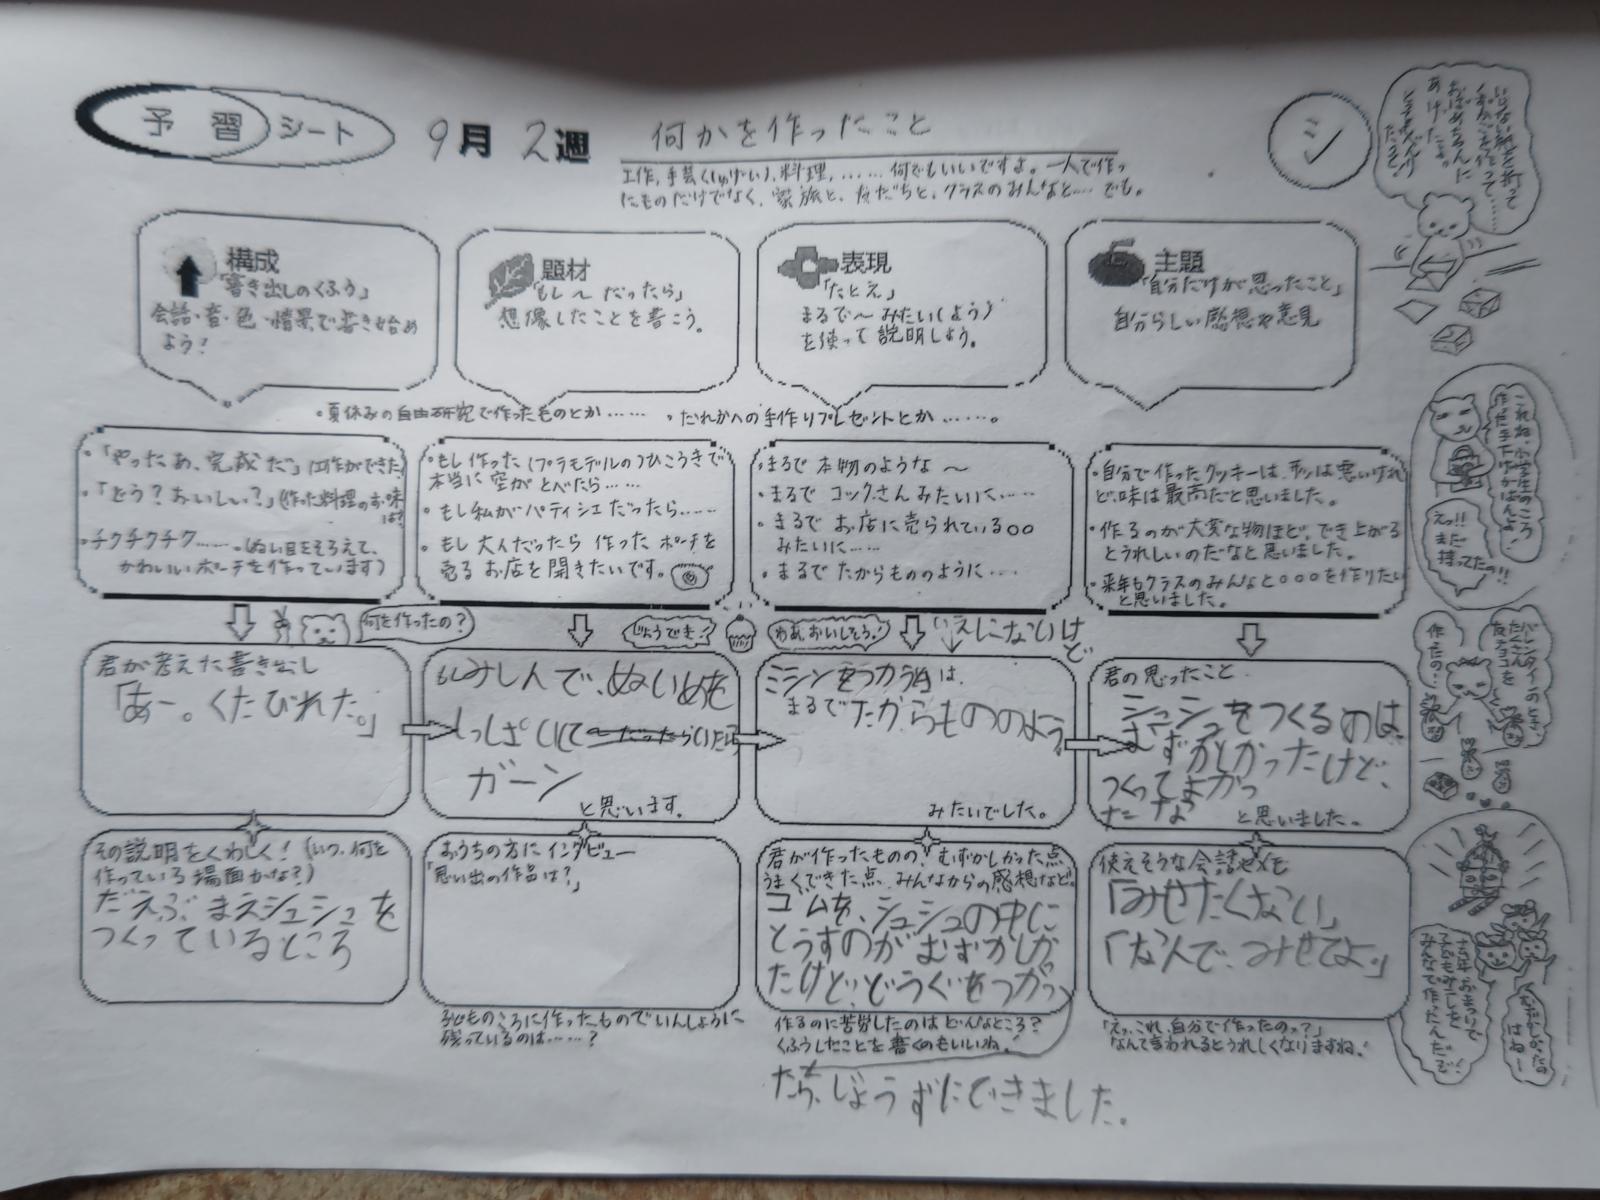 予習シート
9月2週
何かを作ったこと
工作,手芸(しゅげい),料理,……何でもいいですよ。一人で作っ
たものだけでなく、家族と、友だちと、クラスのみんなと…でも。
シ
構成
「書き出しのくふう」
会話・音・色・情景で書き始め
よう!
題材
「もし〜だったら」
想像したことを書こう。
表現
「たとえ」
まるで〜みたい(よう)
を使って説明しよう。
主題
「自分だけが思ったこと」
自分らしい感想や意見
・夏休みの自由研究で作ったものとか……
・だれかへの手作りプレゼントとか……。
・「やったあ、完成だ」(工作ができた)
・「どう?おいしい?」(作った料理のお味は?
・チクチクチク……(ぬい目をそろえて、
かわいいポーチを作っています)
・もし作った(プラモデルの)ひこうきで
本当に空がとべたら……
・もし私がパティシエだったら……
・もし大人だったら作ったポーチを
売るお店を開きたいです。
・まるで本物のような〜
・まるでコックさんみたいに……
・まるでお店に売られている○○
みたいに……
・まるでたからもののように…
・自分で作ったクッキーは、形は悪いけれ
ど、味は最高だと思いました。
・作るのが大変な物ほど、でき上がる
とうれしいのだなと思いました。
・来年もクラスのみんなと○○○を作りたい
と思いました。
何を作ったの?
じょうでき!
わあ、おいしそう!
いえにないけど
君が考えた書き出し
「あー。くたびれた。」
もしみしんで、ぬいめを
しっぱいして
ガーン
と思います。
ミシンをつかう
は、
まるでたからもののよう
みたいでした。
君の思ったこと
シュシュをつくるのは、
むずかしかったけど、
つくってよかっ
たな
と思いました。
その説明をくわしく!(いつ、何を
作っている場面かな?)
だいぶまえシュシュを
つくっているところ
おうちの方にインタビュー
「思い出の作品は?」
子どものころに作ったものでいんしょうに
残っているのは……?
君が作ったものの、むずかしかった点
うまくできた点、みんなからの感想など。
ゴムを、シュシュの中に
とうすのがむずかしか
たけど、どうぐをつかっ
たら、じょうずにできました。
作るのに苦労したのはどんなところ?
くふうしたことを書くのもいいね!
使えそうな会話やメモ
「みせたくない」
「なんで、みせてよ。」
「えっ、これ、自分で作ったのっ?」
なんて言われるとうれしくなりますね。
おばあちゃんに
あげたなぁ。
これね、小学生のころ
作った手さげかばんよ!
えっ!!
まだ
持ってたの!!
バレンタインのとき、
たくさん
友チョコを
作ったの…
去年おまつりで
子どもみこしを
みんなで作ったんだぞ!